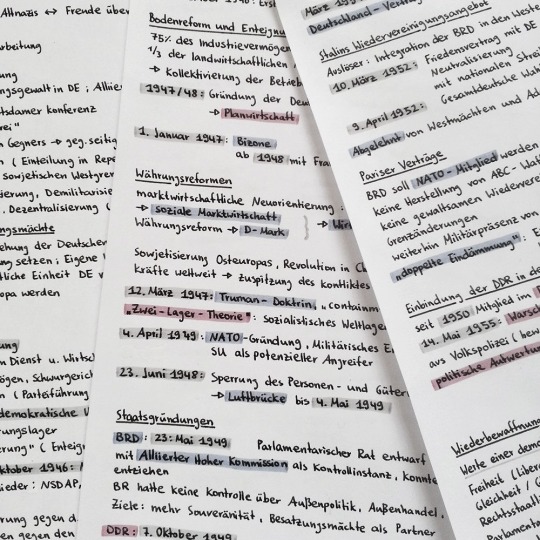 Altnazis ↔ Freude über
arbeitung
ung
ngsgewalt in DE ; Alliier
tsdamer Konferenz
rei"
n Gegners → geg.seitig
n (Einteilung in Rep
sowjetischen Westgren
ierung, Demilitarisie
, Dezentralisierung (
ngsmächte
ehung der Deutschen
ng setzen ; Eigene
tliche Einheit DE
opa werden
ung
n Dienst u. Wirtsc
ögen, Schwurgerich
n (Parteiführung
demokratische V
rungslager
erung" ( Enteign
ktober 1946:
ieder : NSDAP,
rung gegen d
en gegen den
Bodenreform und Enteignu
75% des Industrievermögen
1/3 der landwirtschaftlichen
→ Kollektivierung der Betrieb
1947/48: Gründung der Deu
→ Planwirtschaft
1. Januar 1947: Bizone
ab 1948 mit Fra
Währungsreformen
marktwirtschaftliche Neuorientierung :
→ soziale Marktwirtschaft
Währungsreform → D-Mark } → Wir
Sowjetisierung Osteuropas, Revolution in C
kräfte weltweit → zuspitzung des konfliktes
12. März 1947: Truman-Doktrin, „Containm
„Zwei-Lager-Theorie": sozialistisches Weltlage
4. April 1949: NATO-Gründung, Militärisches
SU als potenzieller Angreifer
23. Juni 1948: Sperrung des Personen- und Güter
→ Luftbrücke bis 4. Mai 1949
Staatsgründungen
BRD : 23. Mai 1949 Parlamentarischer Rat entwarf
mit Alliierter Hoher Kommission als Kontrollinstanz, konnte
entziehen
BR hatte keine Kontrolle über Außenpolitik, Außenhandel,
Ziele: mehr Souveränität, Besatzungsmächte als Partner
DDR: 7. Oktober 1949
März 195
Deutschland-Vertra
Stalins Wiedervereinigungsangebot
Auslöser: Integration der BRD in den Weste
10. März 1952: Friedensvertrag mit DE
Neutralisierung
mit nationalen Strei
Gesamtdeutsche Wahl
9. April 1952:
Abgelehnt von Westmächten und Ad
Pariser Verträge
BRD soll NATO-Mitglied werden
keine Herstellung von ABC-Waf
keine gewaltsamen Wiederverei
Grenzänderungen
weiterhin Militärpräsenz von
„doppelte Eindämmung": E
Einbindung der DDR in de
seit 1950 Mitglied im
14. Mai 1955: Warsch
aus Volkspolizei ( bew
politische Aufwertun
Wiederbewaffnung
Werte einer demo
Freiheit (Liber
Gleichheit / G
Rechtsstaatli
Parlament